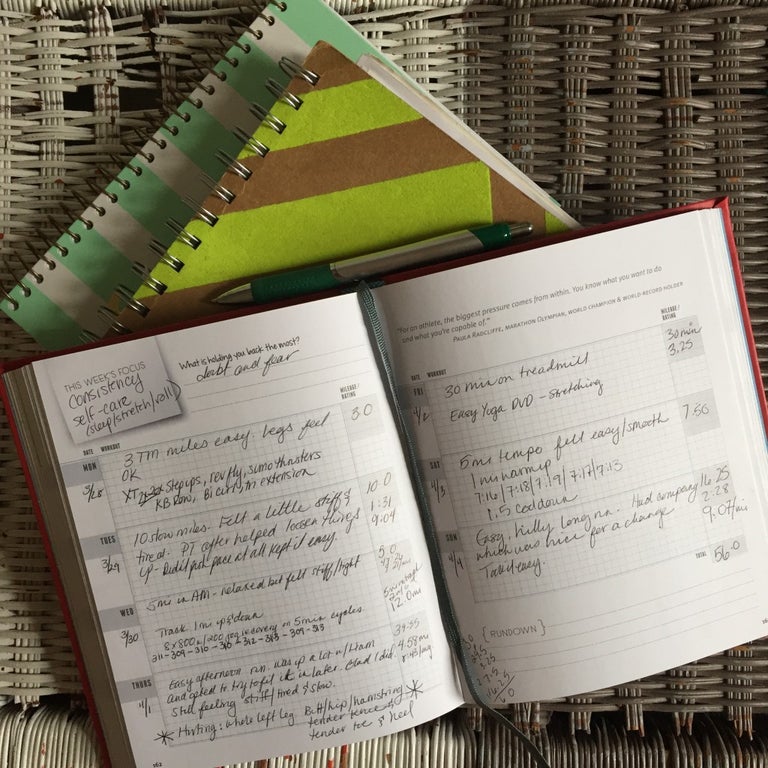 THIS WEEK'S FOCUS
Consistency
self-care
(sleep/stretch/roll)
What is holding you back the most?
doubt and fear
DATE WORKOUT
MILEAGE/
RATING
MON
3/28
3 TM miles easy. Legs feel
OK
3.0
XT stepups, rev fly, sumo thrusters
KB row, Bi curl, tri extension
TUES
3/29
10 slow miles. Felt a little stiff &
tired. PT after helped loosen things
up - Didn't push pace at all kept it easy.
10.0
1:31
9:04
WED
3/30
5 mi in AM - relaxed but felt stiff/tight
5.0
Track 1 mi up & down
8x800 w/200 jog recovery on 5 min cycles.
311-309-310-310-312-313-309-313
12.0mi
THURS
Easy afternoon run. was up a lot w/ Liam
and opted to try to fit it in later. Glad I did.
Still feeling stiff/tired & slow.
4.58mi
* Hurting: whole left leg. Butt/hip/hamstring *
tender
tender toe & heel
162
"For an athlete, the biggest pressure comes from within. You know what you want to do
and what you're capable of."
PAULA RADCLIFFE, MARATHON OLYMPIAN, WORLD CHAMPION & WORLD-RECORD HOLDER
DATE WORKOUT
MILEAGE/
RATING
FRI
30 min on treadmill
Easy Yoga DVD - Stretching
30 min
3.25
SAT
4/3
5 mi tempo felt easy/smooth
1 mi warmup
7:16/7:18/7:19/7:17/7:13
1.5 cooldown
7.50
SUN
4/4
Easy, hilly long run. Had company
which was nice for a change
Totally easy.
16.25
2:28
9:07/mi
TOTAL
56.0
{RUNDOWN}